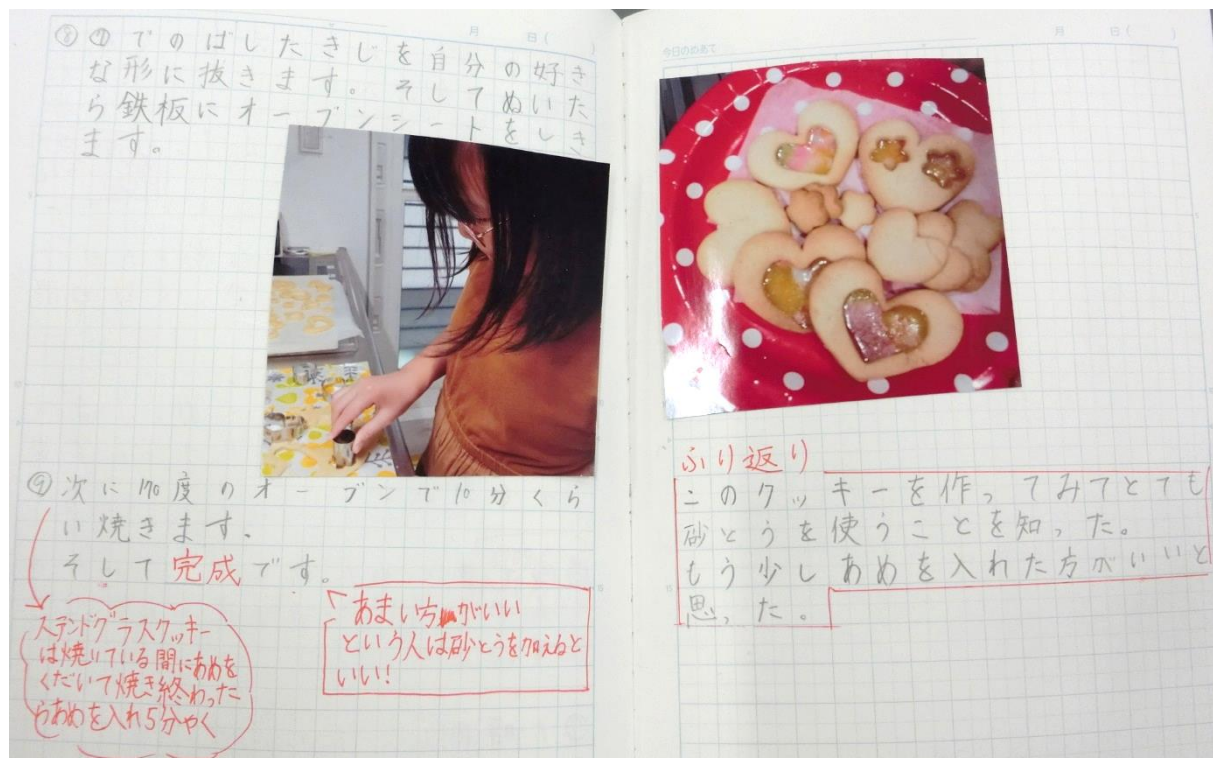 月 日(  )
⑧ ⑦でのばしたきじを自分の好き
な形に抜きます。そしてぬいた
ら鉄板にオーブンシートをしき
ます。
⑨ 次に170度のオーブンで10分くら
い焼きます.
そして完成です。
ステンドグラスクッキー
は焼いている間にあめを
くだいて焼き終わった
らあめを入れ5分やく
あまい方がいい
という人は砂とうを加えると
いい!
今日のめあて
月 日(  )
ふり返り
このクッキーを作ってみてとても
砂とうを使うことを知った。
もう少しあめを入れた方がいいと
思った。